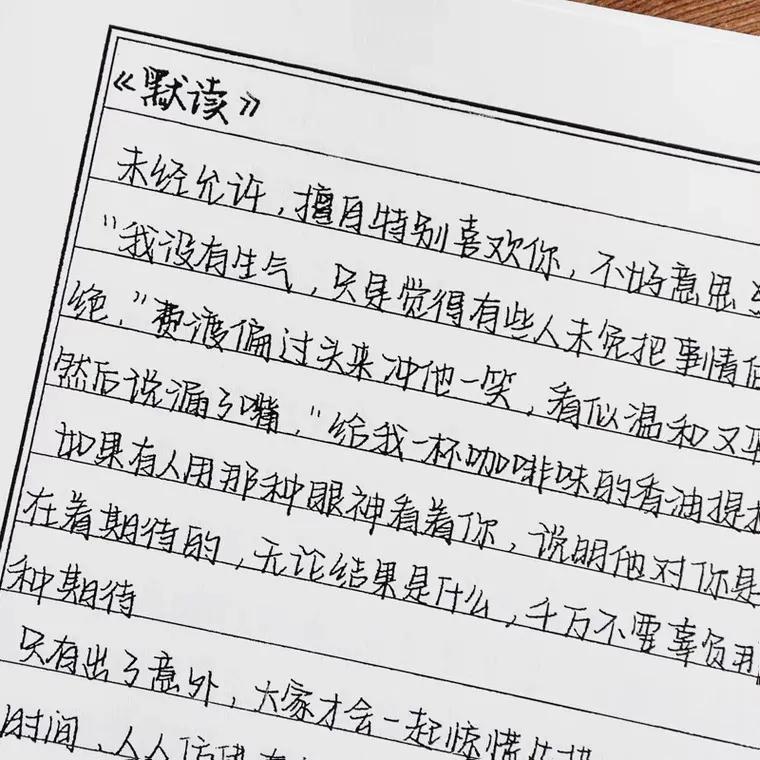 《默读》
未经允许，擅自特别喜欢你，不好意思
“我没有生气，只是觉得有些人未免把事情
绝。”费渡偏过头来冲他一笑，看似温和又平
然后说漏了嘴，“给我一杯咖啡味的香油提
如果有人用那种眼神看着你，说明他对你是
在着期待的，无论结果是什么，千万不要辜负那
种期待
只有出了意外，大家才会一起惊慌失措
时间，人人信誓